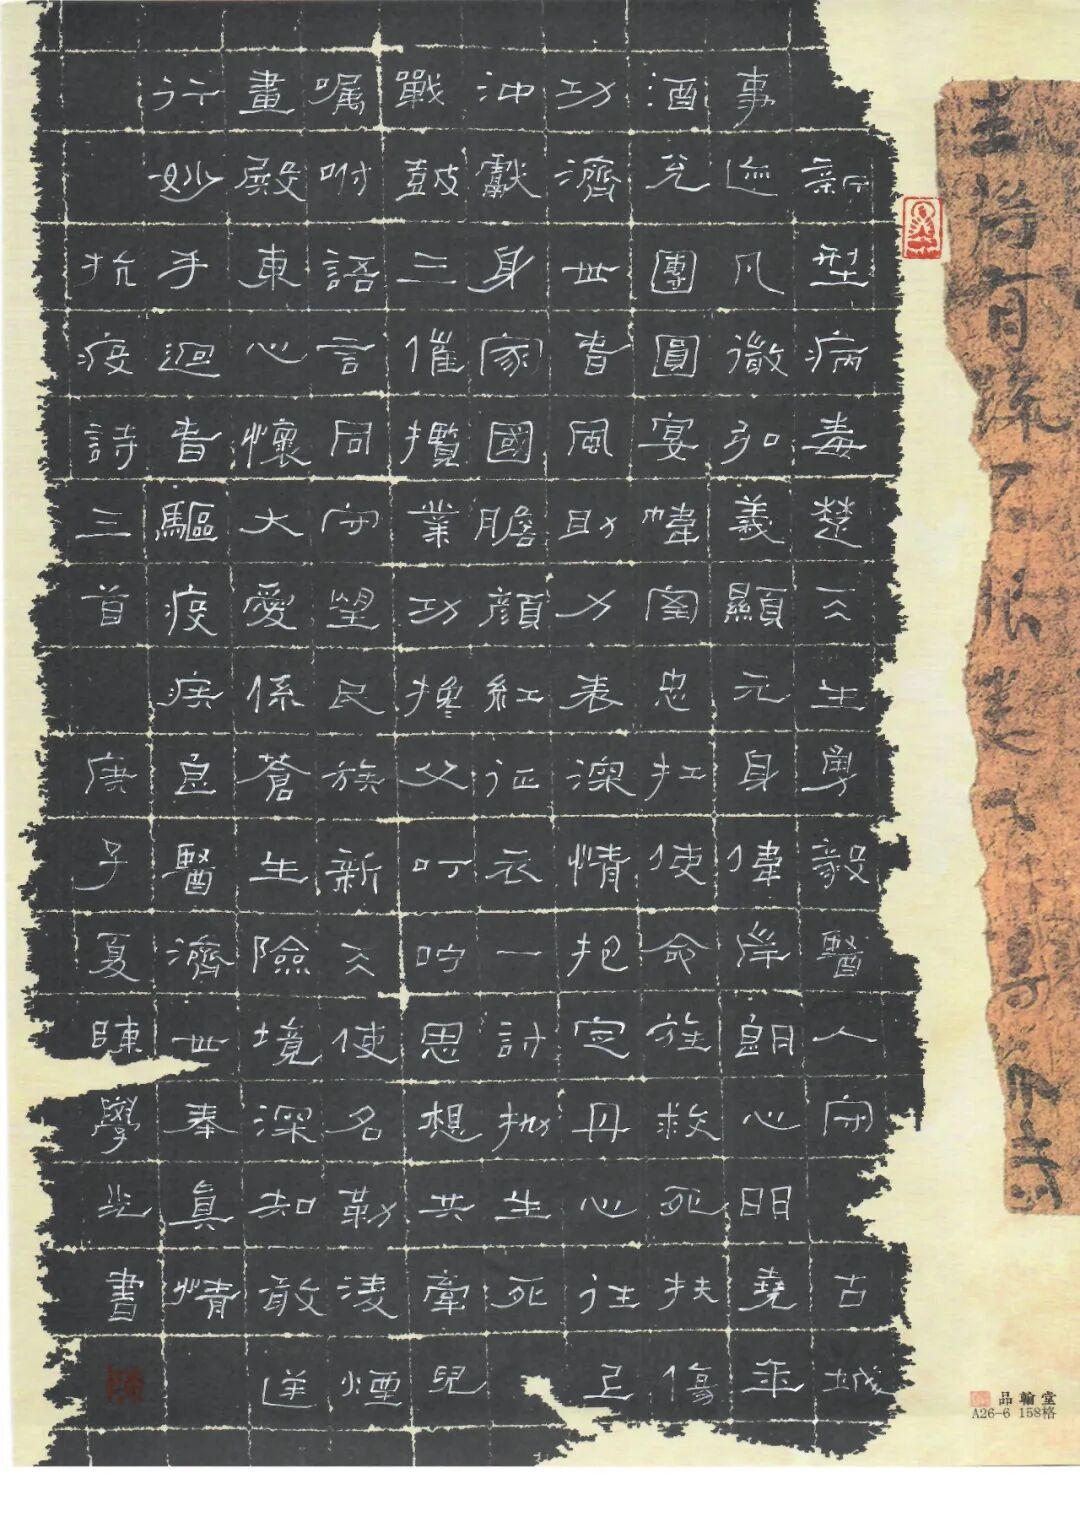 新型病毒楚天生勇毅醫人守古城
事迹凡微弘義顯元身偉岸朗心明堯年
酒兌團圓宴幃忠扛使命旌救死扶傷
功濟世春風助力表深情把定丹心往
沖獻身家國膽顏紅征衣一討批生死
戰鼓三催攬業功摻父叮嚀思想共牽兒
囑咐語言同守望民族新天使名勒凌煙
畫殿東心懷大愛係蒼生險境深知敢逆
行妙手迴春驅疫疾良醫濟世奉真情
抗疫詩三首 庚子夏陳學兆書
品翰堂
A26-6 158格